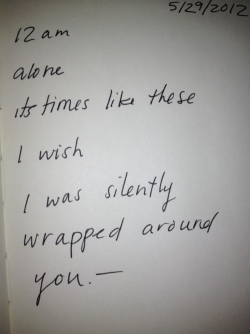 5/29/2012
12 am
alone
its times like these
I wish
I was silently
wrapped around
you.—